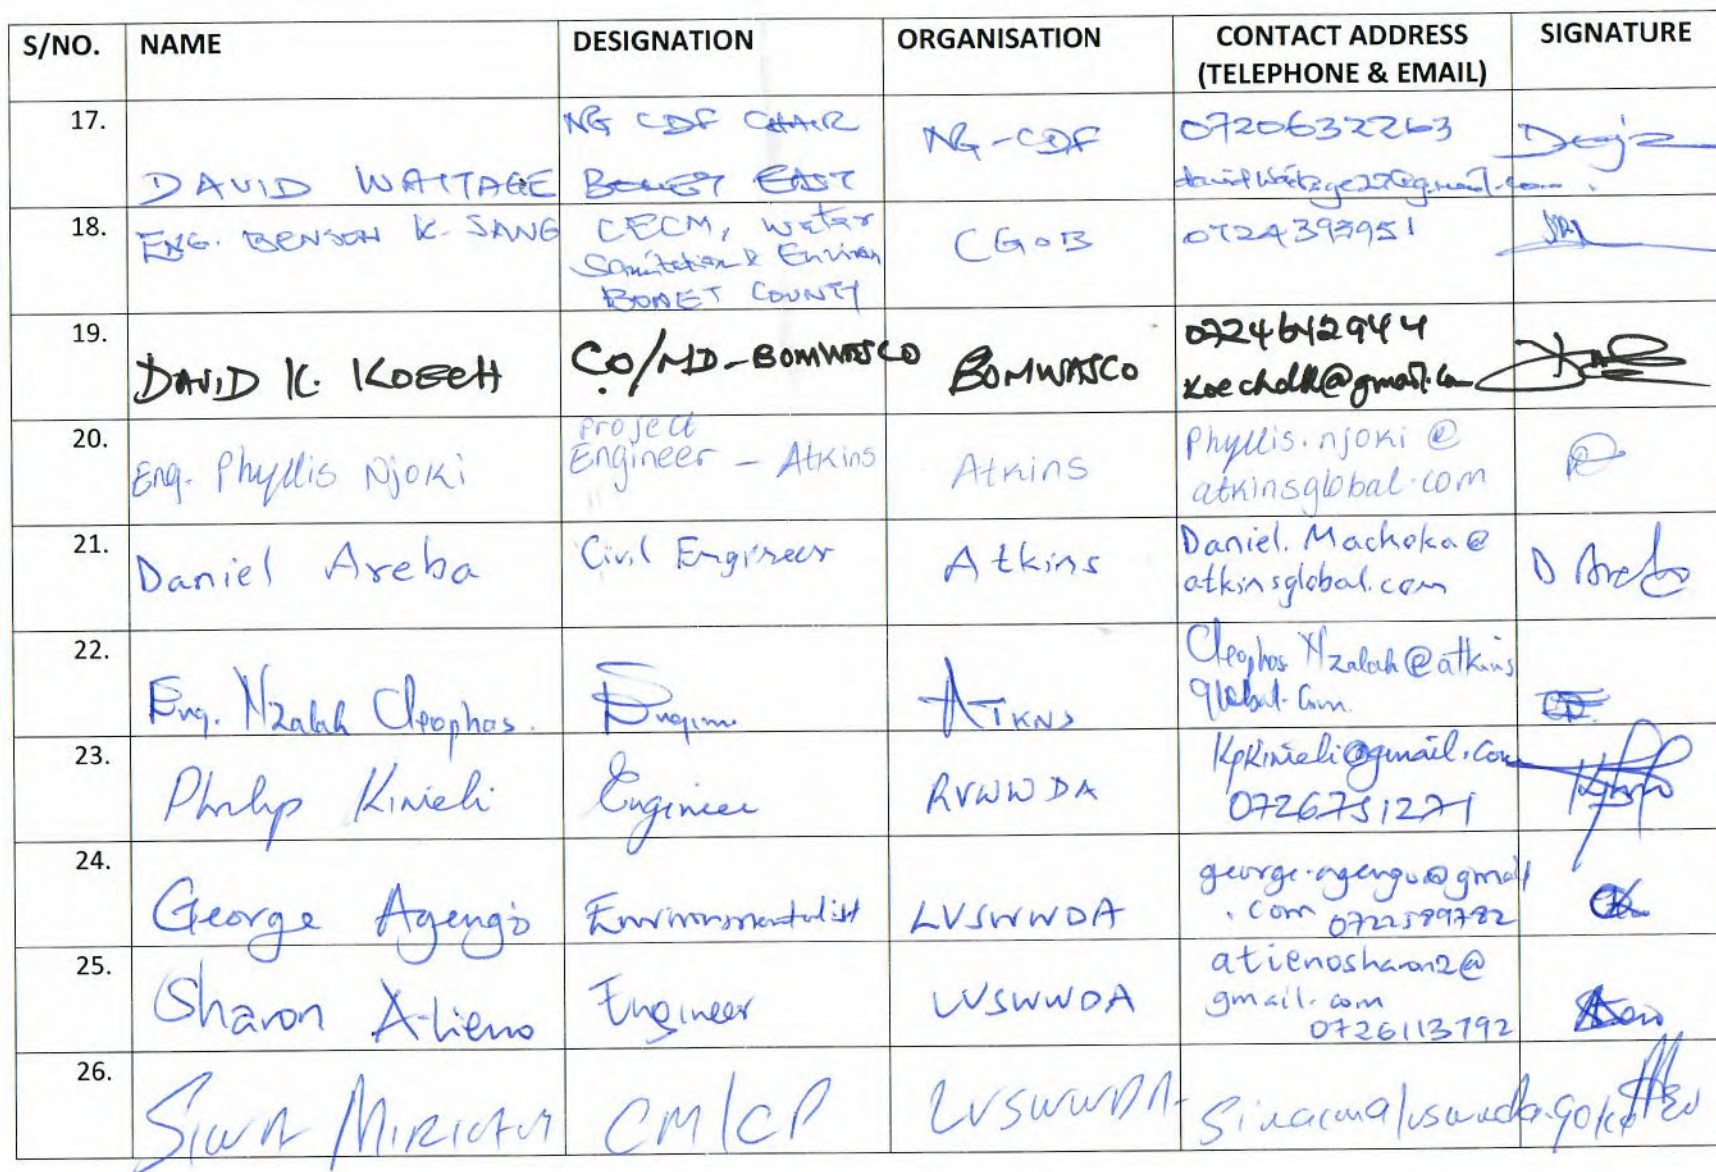 S/NO. NAME DESIGNATION ORGANISATION CONTACT ADDRESS (TELEPHONE & EMAIL) SIGNATURE
17. DAVID WATTAGE NG CDF CHAIR BOMET EAST NG-CDF 0720632263
18. ENG. BENSON K. SANG CECM, Water Sanitation & Environ BOMET COUNTY CGoB 0724393951
19. DAVID K. KOECH CO/MD-BOMWASCO BOMWASCO 0724642944 koechdk@gmail.com
20. Eng. Phyllis Njoki Project Engineer - Atkins Atkins Phyllis.njoki@ atkinsglobal.com
21. Daniel Areba Civil Engineer Atkins Daniel.Machoka@ atkinsglobal.com D Areba
22. Eng. Nzalah Cleophas. Engineer ATKNS Cleophas Nzalah@atkins global.com
23. Philip Kinieli Engineer RVWWDA Kpkinieli@gmail.com 0726751271
24. George Agengo Environmentalist LVSWWDA george.agengo@gmail .com 0722589782
25. Sharon Atieno Engineer LVSWWDA atienosharon2@ gmail.com 0726113792
26. SIWA MIRIAM CM/CP LVSWWDA